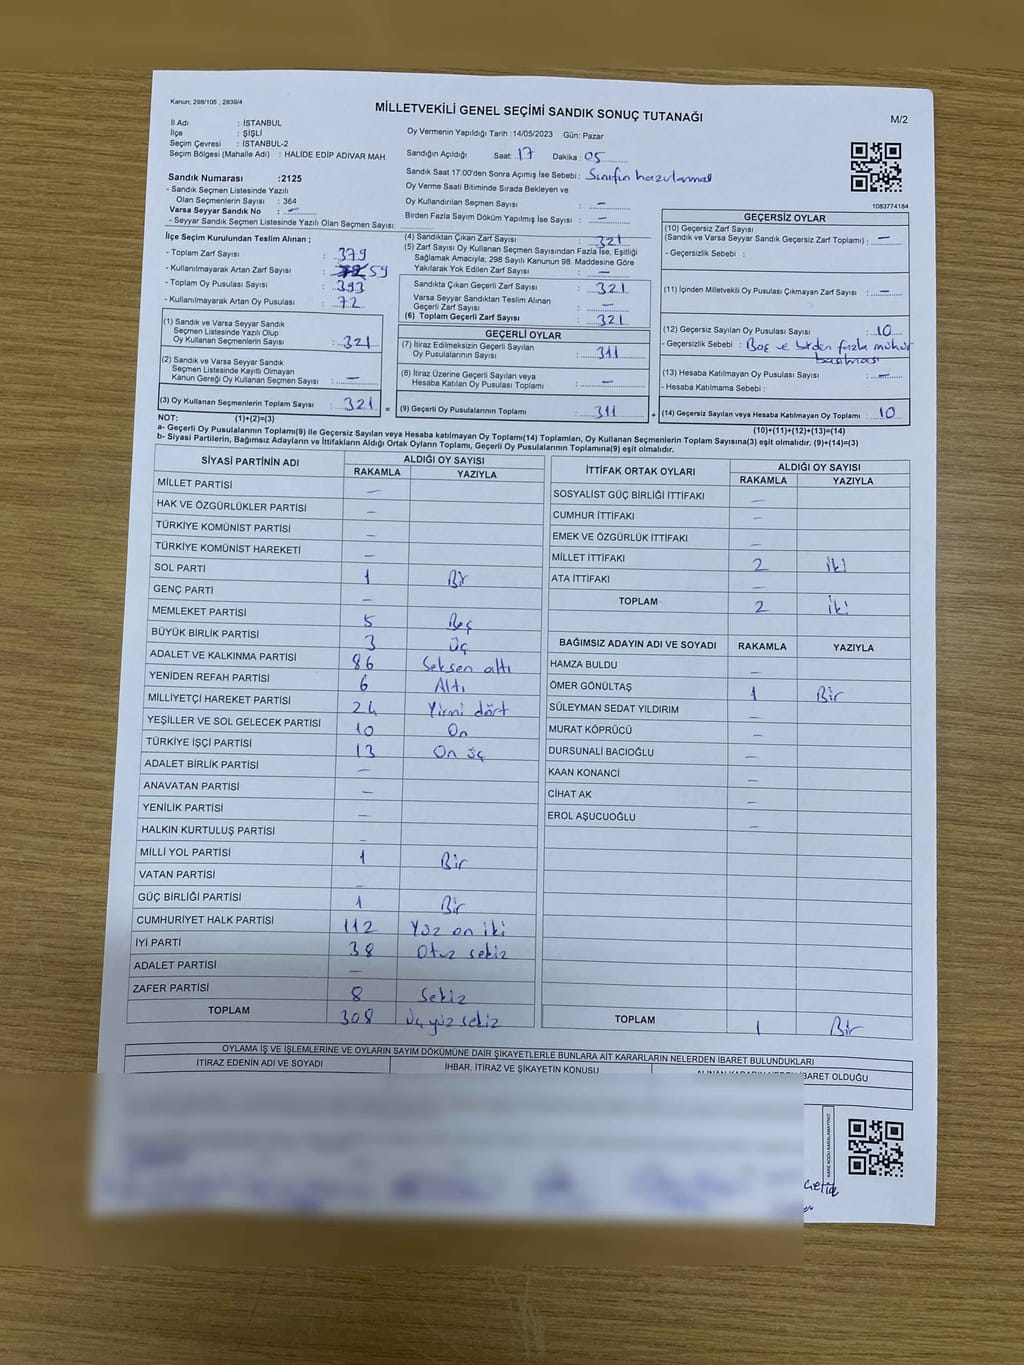 Kanun; 298/105 , 2839/4
MİLLETVEKİLİ GENEL SEÇİMİ SANDIK SONUÇ TUTANAĞI
M/2
İl Adı : İSTANBUL
İlçe : ŞİŞLİ
Seçim Çevresi : İSTANBUL-2
Seçim Bölgesi (Mahalle Adı) : HALİDE EDİP ADIVAR MAH.
Oy Vermenin Yapıldığı Tarih :14/05/2023 Gün: Pazar
Sandığın Açıldığı Saat: 17 Dakika: 05
Sandık Saat 17:00'den Sonra Açımış İse Sebebi : Sınıfın hazırlanması
Oy Verme Saati Bitiminde Sırada Bekleyen ve
Oy Kullandırılan Seçmen Sayısı : —
Birden Fazla Sayım Döküm Yapılmış İse Sayısı : —
1083774184
Sandık Numarası :2125
- Sandık Seçmen Listesinde Yazılı
Olan Seçmenlerin Sayısı : 364
Varsa Seyyar Sandık No : —
- Seyyar Sandık Seçmen Listesinde Yazılı Olan Seçmen Sayısı:
İlçe Seçim Kurulundan Teslim Alınan ;
- Toplam Zarf Sayısı : 379
- Kullanılmayarak Artan Zarf Sayısı : 59
- Toplam Oy Pusulası : 393
- Kullanılmayarak Artan Oy Pusulası : 72
(1) Sandık ve Varsa Seyyar Sandık
Seçmen Listesinde Yazılı Olup
Oy Kullanan Seçmenlerin Sayısı : 321
(2) Sandık ve Varsa Seyyar Sandık
Seçmen Listesinde Kayıtlı Olmayan
Kanun Gereği Oy Kullanan Seçmen Sayısı : —
(3) Oy Kullanan Seçmenlerin Toplam Sayısı : 321
(4) Sandıktan Çıkan Zarf Sayısı : 321
(5) Zarf Sayısı Oy Kullanan Seçmen Sayısından Fazla İse, Eşitliği
Sağlamak Amacıyla; 298 Sayılı Kanunun 98. Maddesine Göre
Yakılarak Yok Edilen Zarf Sayısı : —
Sandıkta Çıkan Geçerli Zarf Sayısı : 321
Varsa Seyyar Sandıktan Teslim Alınan
Geçerli Zarf Sayısı : —
(6) Toplam Geçerli Zarf Sayısı : 321
GEÇERLİ OYLAR
(7) İtiraz Edilmeksizin Geçerli Sayılan
Oy Pusulalarının Sayısı : 311
(8) İtiraz Üzerine Geçerli Sayılan veya
Hesaba Katılan Oy Pusulası Toplamı : —
= (9) Geçerli Oy Pusulalarının Toplamı : 311
GEÇERSİZ OYLAR
(10) Geçersiz Zarf Sayısı
(Sandık ve Varsa Seyyar Sandık Geçersiz Zarf Toplamı) : —
- Geçersizlik Sebebi :
(11) İçinden Milletvekili Oy Pusulası Çıkmayan Zarf Sayısı : —
(12) Geçersiz Sayılan Oy Pusulası Sayısı : 10
- Geçersizlik Sebebi : Boş ve birden fazla mühür
basılması
(13) Hesaba Katılmayan Oy Pusulası Sayısı : —
- Hesaba Katılmama Sebebi :
+ (14) Geçersiz Sayılan veya Hesaba Katılmayan Oy Toplamı : 10
NOT: (1)+(2)=(3)
(10)+(11)+(12)+(13)=(14)
a- Geçerli Oy Pusulalarının Toplamı(9) ile Geçersiz Sayılan veya Hesaba katılmayan Oy Toplamı(14) Toplamları, Oy Kullanan Seçmenlerin Toplam Sayısına(3) eşit olmalıdır. (9)+(14)=(3)
b- Siyasi Partilerin, Bağımsız Adayların ve İttifakların Aldığı Oyların Toplamı, Geçerli Oy Pusulalarının Toplamına(9) eşit olmalıdır.
SİYASİ PARTİNİN ADI ALDIĞI OY SAYISI
RAKAMLA YAZIYLA
MİLLET PARTİSİ —
HAK VE ÖZGÜRLÜKLER PARTİSİ —
TÜRKİYE KOMÜNİST PARTİSİ —
TÜRKİYE KOMÜNİST HAREKETİ —
SOL PARTİ 1 Bir
GENÇ PARTİ —
MEMLEKET PARTİSİ 5 Beş
BÜYÜK BİRLİK PARTİSİ 3 Üç
ADALET VE KALKINMA PARTİSİ 86 Seksen altı
YENİDEN REFAH PARTİSİ 6 Altı
MİLLİYETÇİ HAREKET PARTİSİ 24 Yirmi dört
YEŞİLLER VE SOL GELECEK PARTİSİ 10 On
TÜRKİYE İŞÇİ PARTİSİ 13 On üç
ADALET BİRLİK PARTİSİ —
ANAVATAN PARTİSİ —
YENİLİK PARTİSİ —
HALKIN KURTULUŞ PARTİSİ —
MİLLİ YOL PARTİSİ 1 Bir
VATAN PARTİSİ —
GÜÇ BİRLİĞİ PARTİSİ 1 Bir
CUMHURİYET HALK PARTİSİ 112 Yüz on iki
İYİ PARTİ 38 Otuz sekiz
ADALET PARTİSİ —
ZAFER PARTİSİ 8 Sekiz
TOPLAM 308 üç yüz sekiz
İTTİFAK ORTAK OYLARI ALDIĞI OY SAYISI
RAKAMLA YAZIYLA
SOSYALİST GÜÇ BİRLİĞİ İTTİFAKI —
CUMHUR İTTİFAKI —
EMEK VE ÖZGÜRLÜK İTTİFAKI —
MİLLET İTTİFAKI 2 iki
ATA İTTİFAKI —
TOPLAM 2 iki
BAĞIMSIZ ADAYIN ADI VE SOYADI RAKAMLA YAZIYLA
HAMZA BULDU —
ÖMER GÖNÜLTAŞ 1 Bir
SÜLEYMAN SEDAT YILDIRIM —
MURAT KÖPRÜCÜ —
DURSUNALİ BACIOĞLU —
KAAN KONANCİ —
CİHAT AK —
EROL AŞUCUOĞLU —
TOPLAM 1 Bir
OYLAMA İŞ VE İŞLEMLERİNE VE OYLARIN SAYIM DÖKÜMÜNE DAİR ŞİKAYETLERLE BUNLARA AİT KARARLARIN NELERDEN İBARET BULUNDUKLARI
İTİRAZ EDENİN ADI VE SOYADI İHBAR, İTİRAZ VE ŞİKAYETİN KONUSU ALINAN KARARIN NEDEN İBARET OLDUĞU
KARE KODU KARALAMAYINIZ